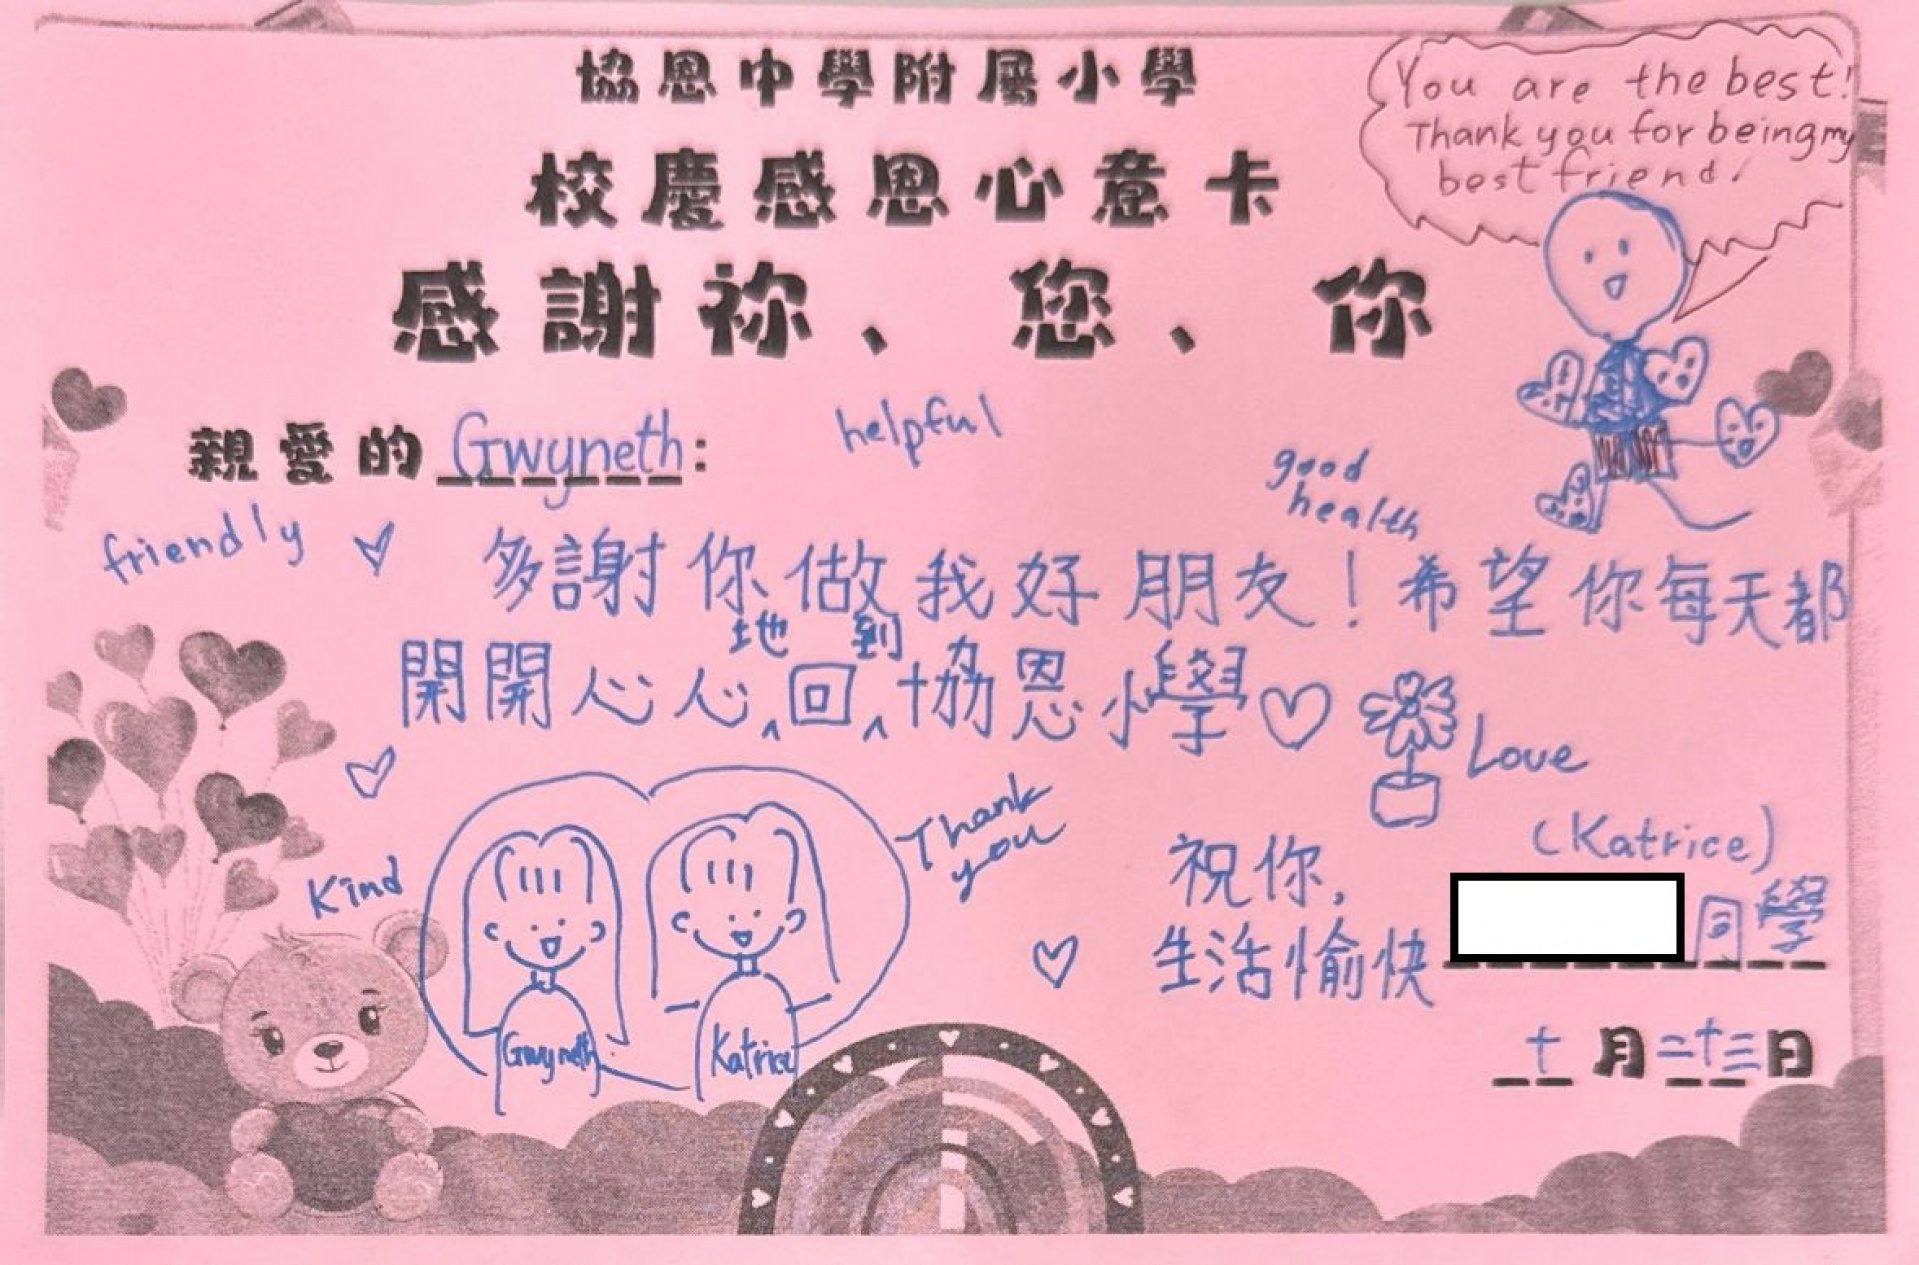 協恩中學附屬小學
校慶感恩心意卡
感謝祢、您、你
You are the best!
Thank you for being my
best friend!
親愛的 Gwyneth:
helpful
good
health
friendly
多謝你做我好朋友！希望你每天都
開開心心地回到協恩小學
Love
Kind
Thank
you
Gwyneth
Katrice
祝你,
生活愉快
(Katrice)
同學
十月二十三日